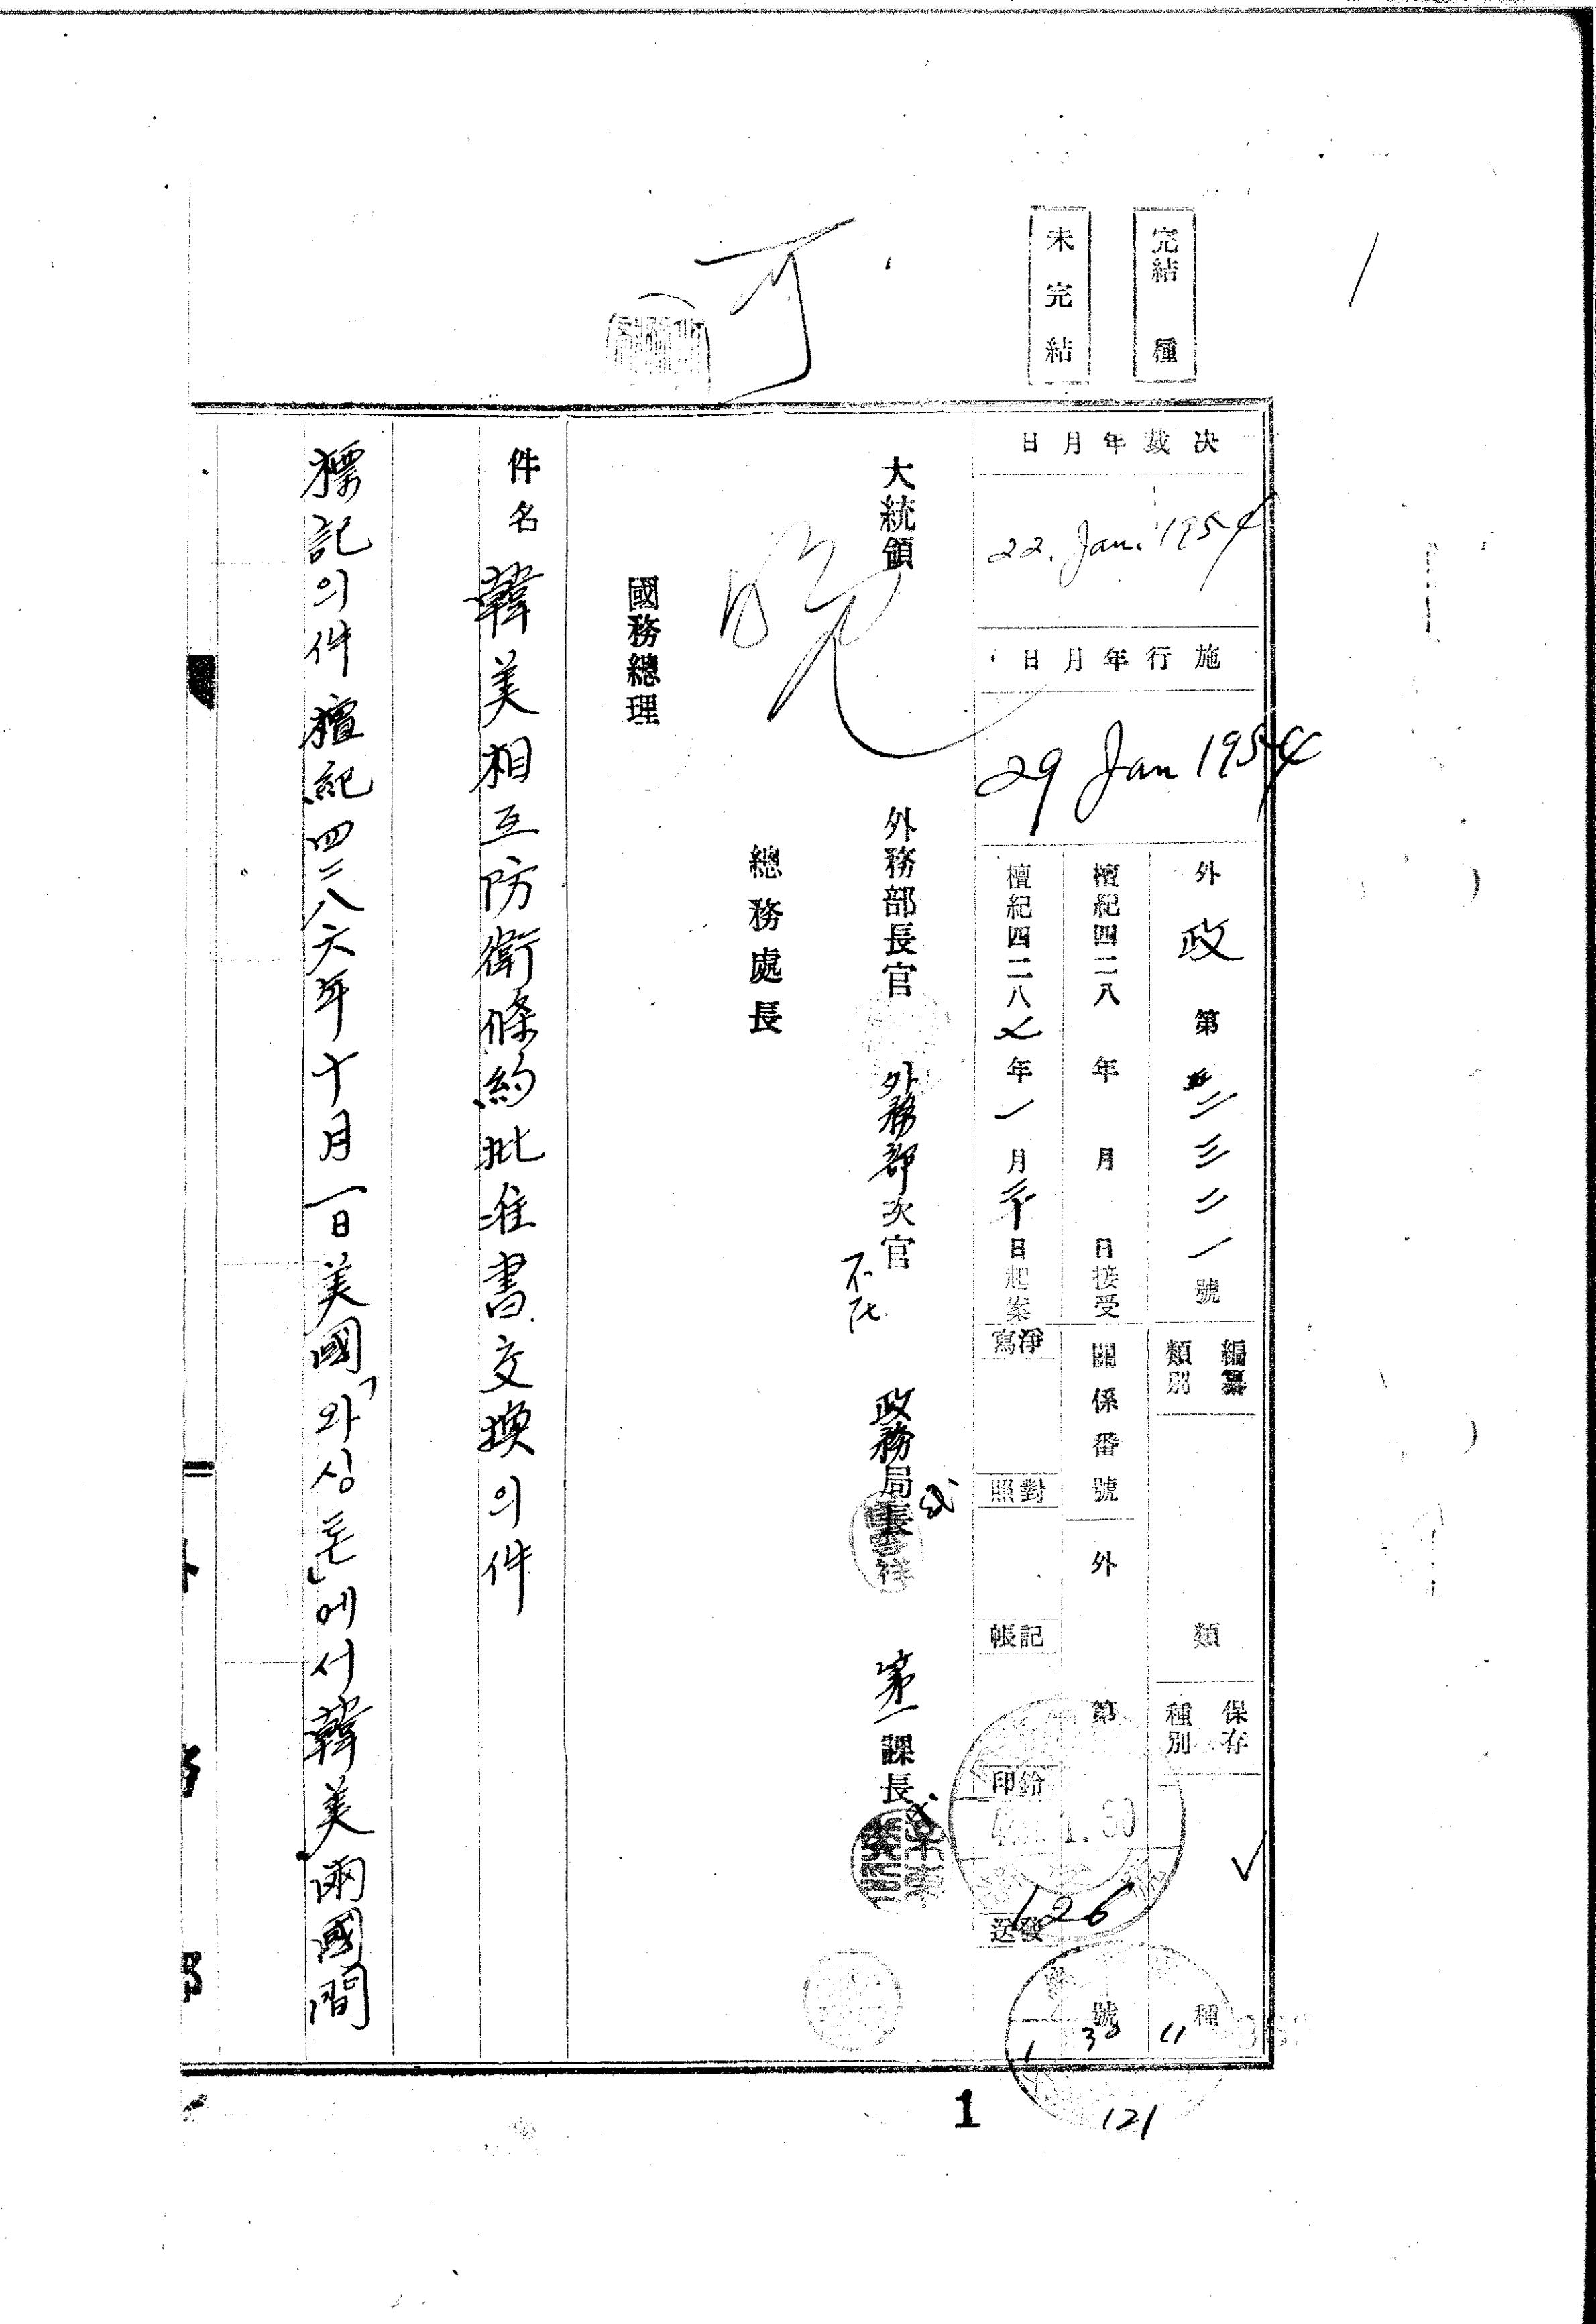 完結 種
未完結
可
決裁年月日
22. Jan. 1954
施行年月日
29 Jan 1954
外政 第 二三二一號
編纂類別 類
保存種別 種
檀紀四二八 年 月 日接受
關係番號 外 第 號
檀紀四二八七年一月二十日起案
淨寫
對照
記帳
鈐印
發送
126
大統領
晩
外務部長官
外務部次官
不在
政務局長
第一課長
總務處長
國務總理
件名 韓美相互防衛條約批准書交換의件
標記의件 檀紀四二八六年十月一日美國「와싱톤」에서韓美兩國間
1 30 11
121
1